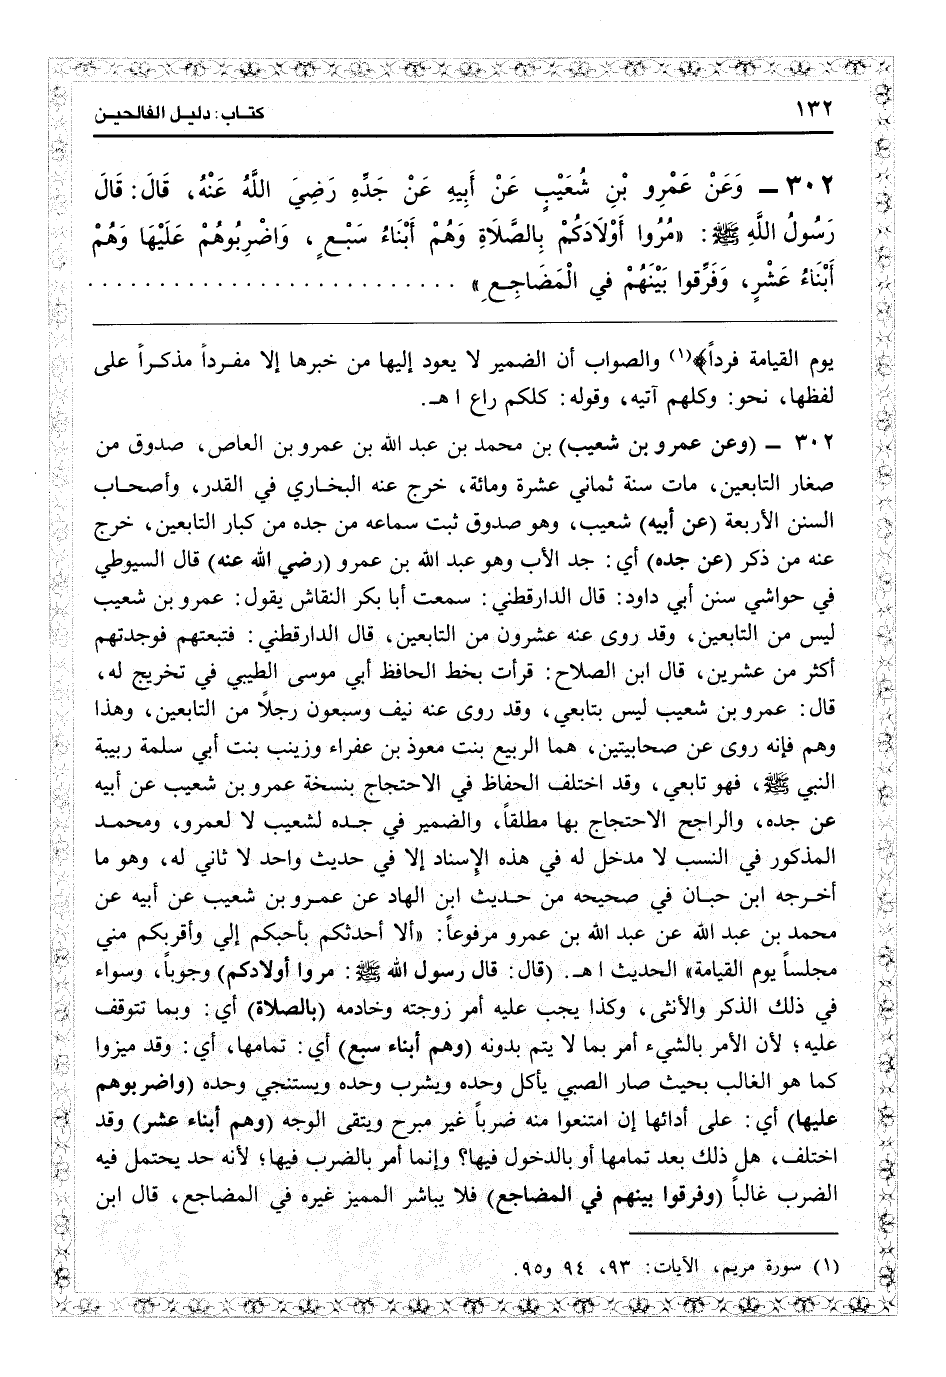 ١٣٢
كتـاب: دليـل الفالحيـن
٣٠٢ ــ وَعَنْ عَمْرِو بْنِ شُعَيْبٍ عَنْ أَبِيهِ عَنْ جَدِّهِ رَضِيَ اللَّهُ عَنْهُ، قَالَ: قَالَ
رَسُولُ اللَّهِ ﷺ: «مُرُوا أَوْلَادَكُمْ بِالصَّلَاةِ وَهُمْ أَبْنَاءُ سَبْعٍ، وَاضْرِبُوهُمْ عَلَيْهَا وَهُمْ
أَبْنَاءُ عَشْرٍ، وَفَرِّقوا بَيْنَهُمْ في الْمَضَاجِعِ» . . . . . . . . . . . . . . . . . . . . . . . . . .
يوم القيامة فرداً﴾(١) والصواب أن الضمير لا يعود إليها من خبرها إلا مفـرداً مذكـراً على
لفظها، نحو: وكلهم آتيه، وقوله: كلكم راع ا هـ.
٣٠٢ ــ (وعن عمرو بن شعيب) بن محمد بن عبد الله بن عمرو بن العاص، صدوق من
صغار التابعين، مات سنة ثماني عشرة ومائة، خرج عنه البخاري في القدر، وأصحـاب
السنن الأربعة (عن أبيه) شعيب، وهو صدوق ثبت سماعه من جده من كبار التابعين، خرج
عنه من ذكر (عن جده) أي: جد الأب وهو عبد الله بن عمرو (رضي الله عنه) قال السيوطي
في حواشي سنن أبي داود: قال الدارقطني: سمعت أبا بكر النقاش يقول: عمرو بن شعيب
ليس من التابعين، وقد روى عنه عشرون من التابعين، قال الدارقطني: فتبعتهم فوجدتهم
أكثر من عشرين، قال ابن الصلاح: قرأت بخط الحافظ أبي موسى الطيبي في تخريج له،
قال: عمرو بن شعيب ليس بتابعي، وقد روى عنه نيف وسبعون رجلاً من التابعين، وهذا
وهم فإنه روى عن صحابيتين، هما الربيع بنت معوذ بن عفراء وزينب بنت أبي سلمة ربيبة
النبي ﷺ، فهو تابعي، وقد اختلف الحفاظ في الاحتجاج بنسخة عمرو بن شعيب عن أبيه
عن جده، والراجح الاحتجاج بها مطلقاً، والضمير في جـده لشعيب لا لعمرو، ومحمـد
المذكور في النسب لا مدخل له في هذه الإسناد إلا في حديث واحد لا ثاني له، وهو ما
أخـرجه ابن حبـان في صحيحه من حـديث ابن الهاد عن عمـرو بن شعيب عن أبيه عن
محمد بن عبد الله عن عبد الله بن عمرو مرفوعاً: «ألا أحدثكم بأحبكم إلي وأقربكم مني
مجلساً يوم القيامة» الحديث ا هـ. (قال: قال رسول الله ﷺ: مروا أولادكم) وجوباً، وسواء
في ذلك الذكر والأنثى، وكذا يجب عليه أمر زوجته وخادمه (بالصلاة) أي: وبما تتوقف
عليه؛ لأن الأمر بالشيء أمر بما لا يتم بدونه (وهم أبناء سبع) أي: تمامها، أي: وقد ميزوا
كما هو الغالب بحيث صار الصبي يأكل وحده ويشرب وحده ويستنجي وحده (واضربوهم
عليها) أي: على أدائها إن امتنعوا منه ضرباً غير مبرح ويتقى الوجه (وهم أبناء عشر) وقد
اختلف، هل ذلك بعد تمامها أو بالدخول فيها؟ وإنما أمر بالضرب فيها؛ لأنه حد يحتمل فيه
الضرب غالباً (وفرقوا بينهم في المضاجع) فلا يباشر المميز غيره في المضاجع، قال ابن
(١) سورة مريم، الآيات: ٩٣، ٩٤ و٩٥.